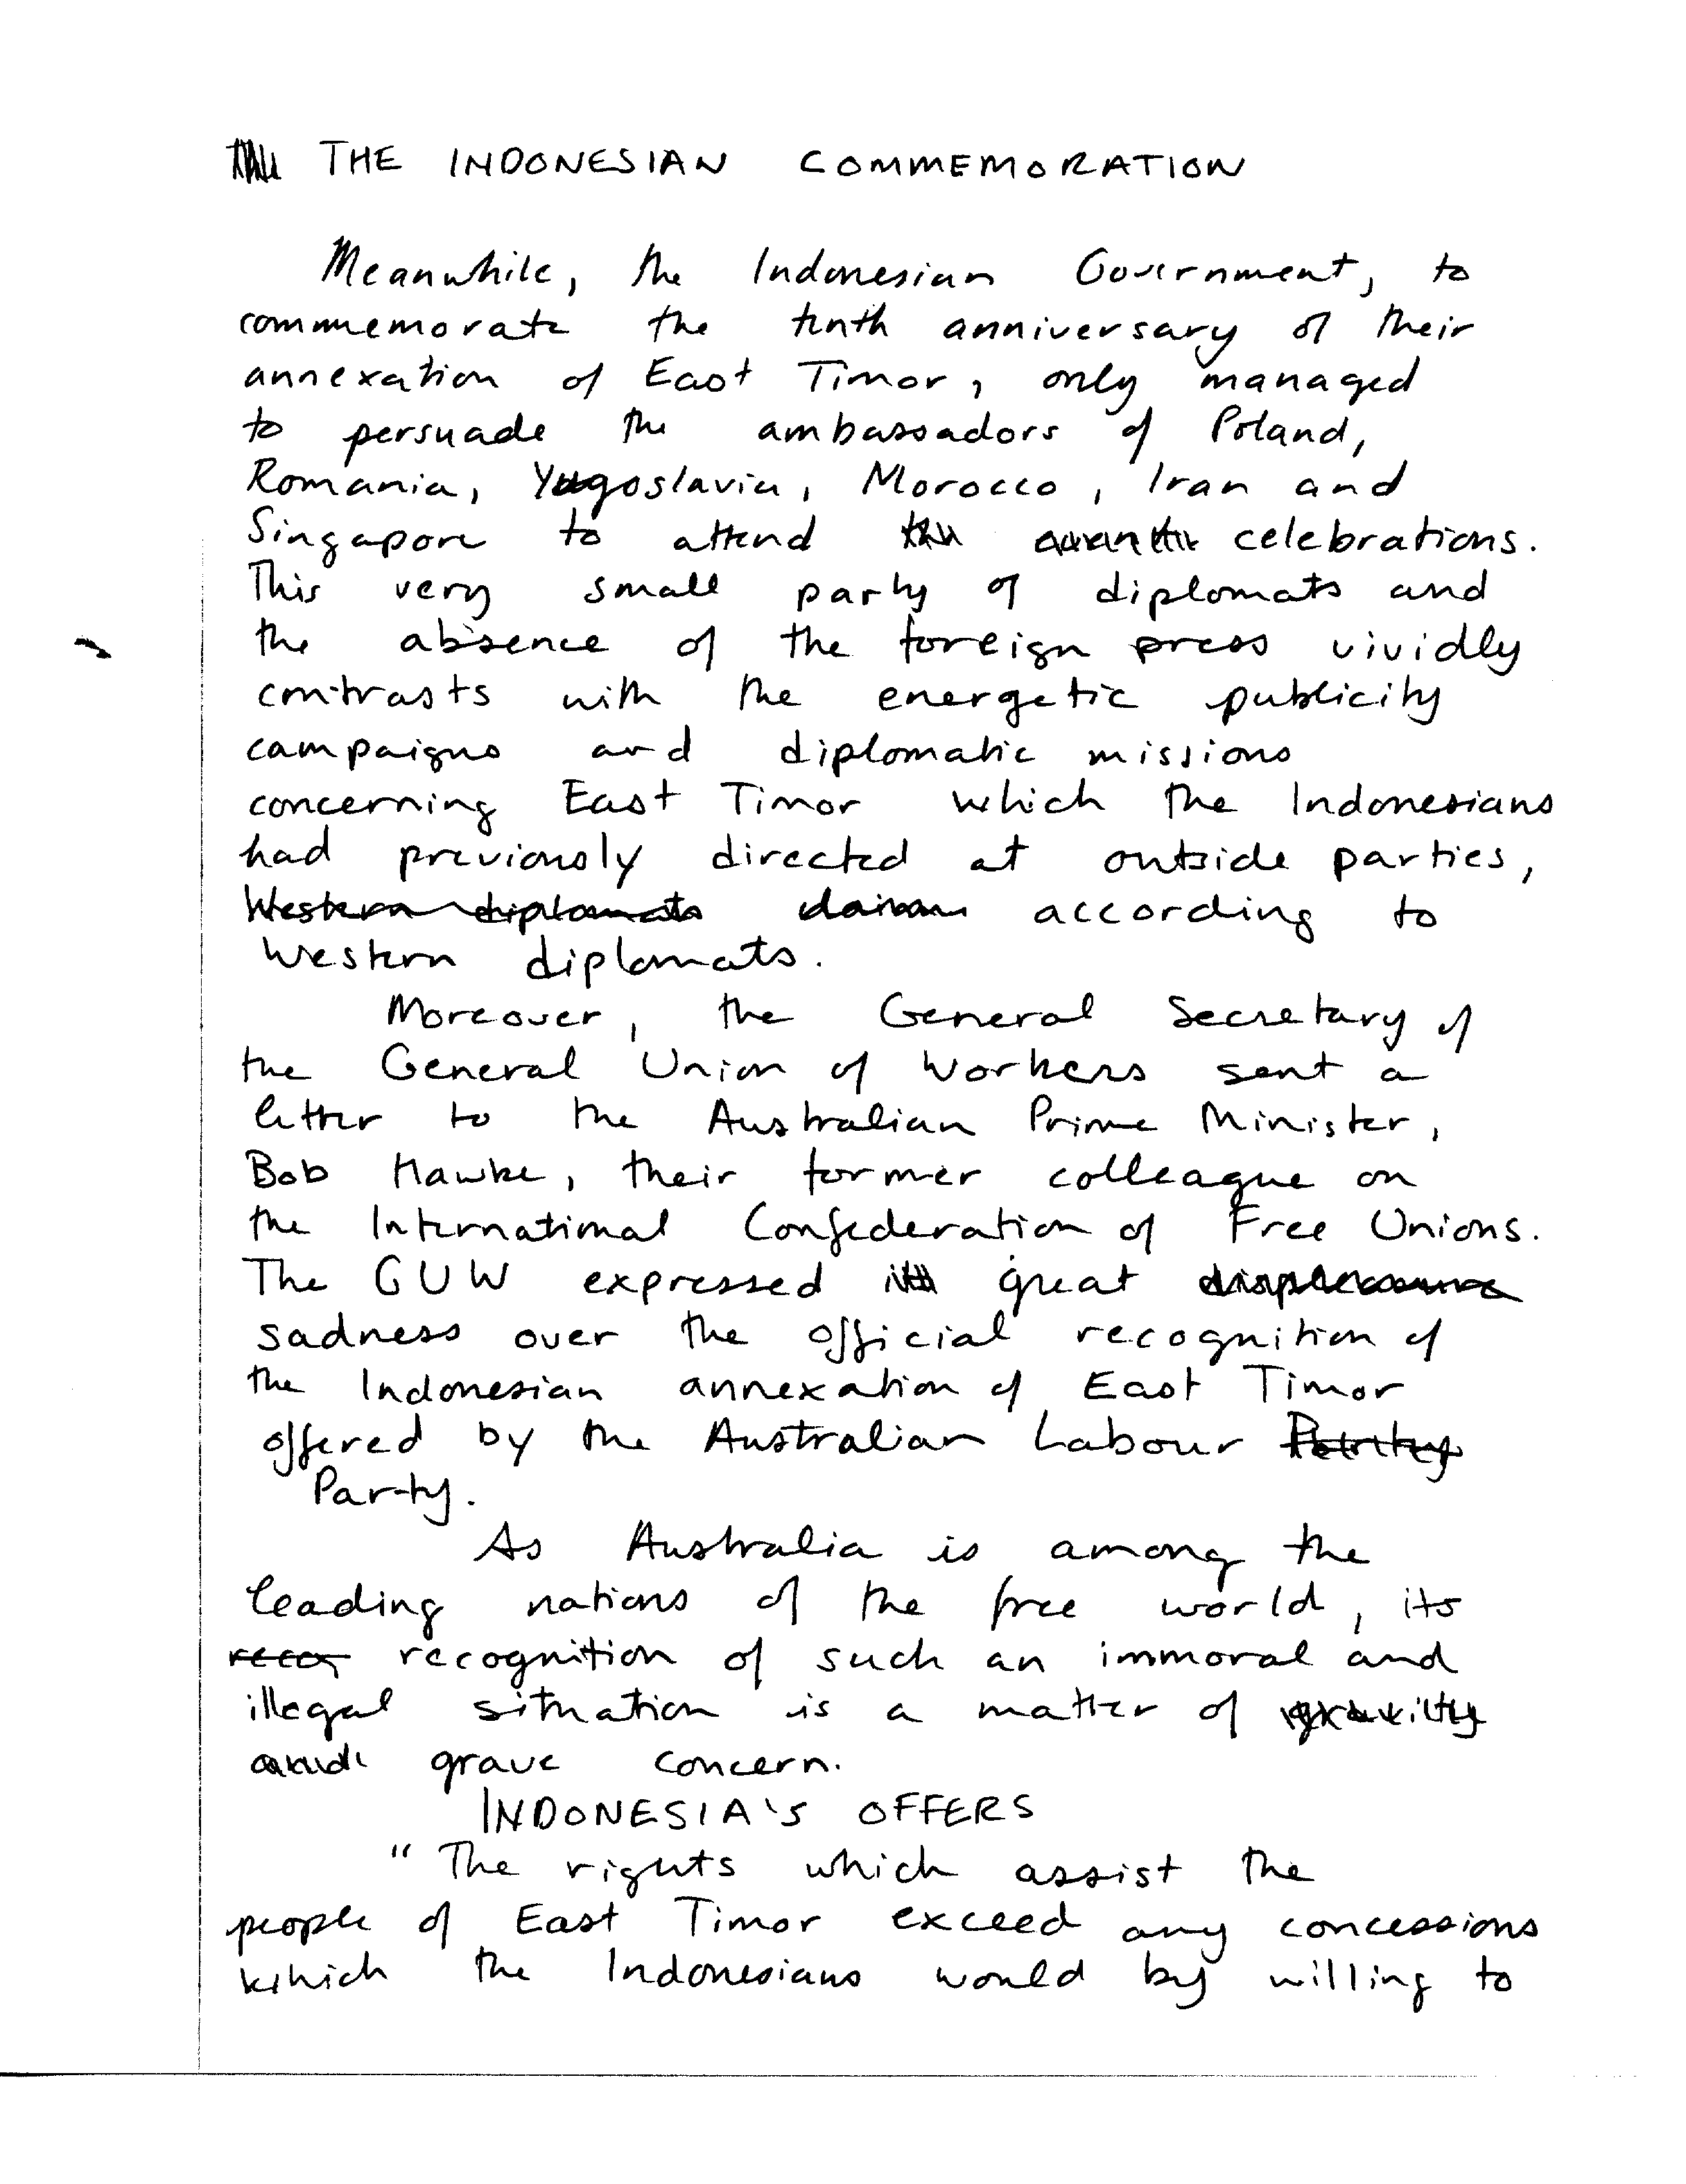 THE INDONESIAN COMMEMORATION
Meanwhile, the Indonesian Government, to
commemorate the tenth anniversary of their
annexation of East Timor, only managed
to persuade the ambassadors of Poland,
Romania, Yugoslavia, Morocco, Iran and
Singapore to attend celebrations.
This very small party of diplomats and
the absence of the foreign press vividly
contrasts with the energetic publicity
campaigns and diplomatic missions
concerning East Timor which the Indonesians
had previously directed at outside parties,
Western diplomats according to
Western diplomats.
Moreover, the General Secretary of
the General Union of Workers sent a
letter to the Australian Prime Minister,
Bob Hawke, their former colleague on
the International Confederation of Free Unions.
The GUW expressed great displeasure
sadness over the official recognition of
the Indonesian annexation of East Timor
offered by the Australian Labour Party
Party.
As Australia is among the
leading nations of the free world, its
recog recognition of such an immoral and
illegal situation is a matter of
grave concern.
INDONESIA'S OFFERS
"The rights which assist the
people of East Timor exceed any concessions
which the Indonesians would by willing to